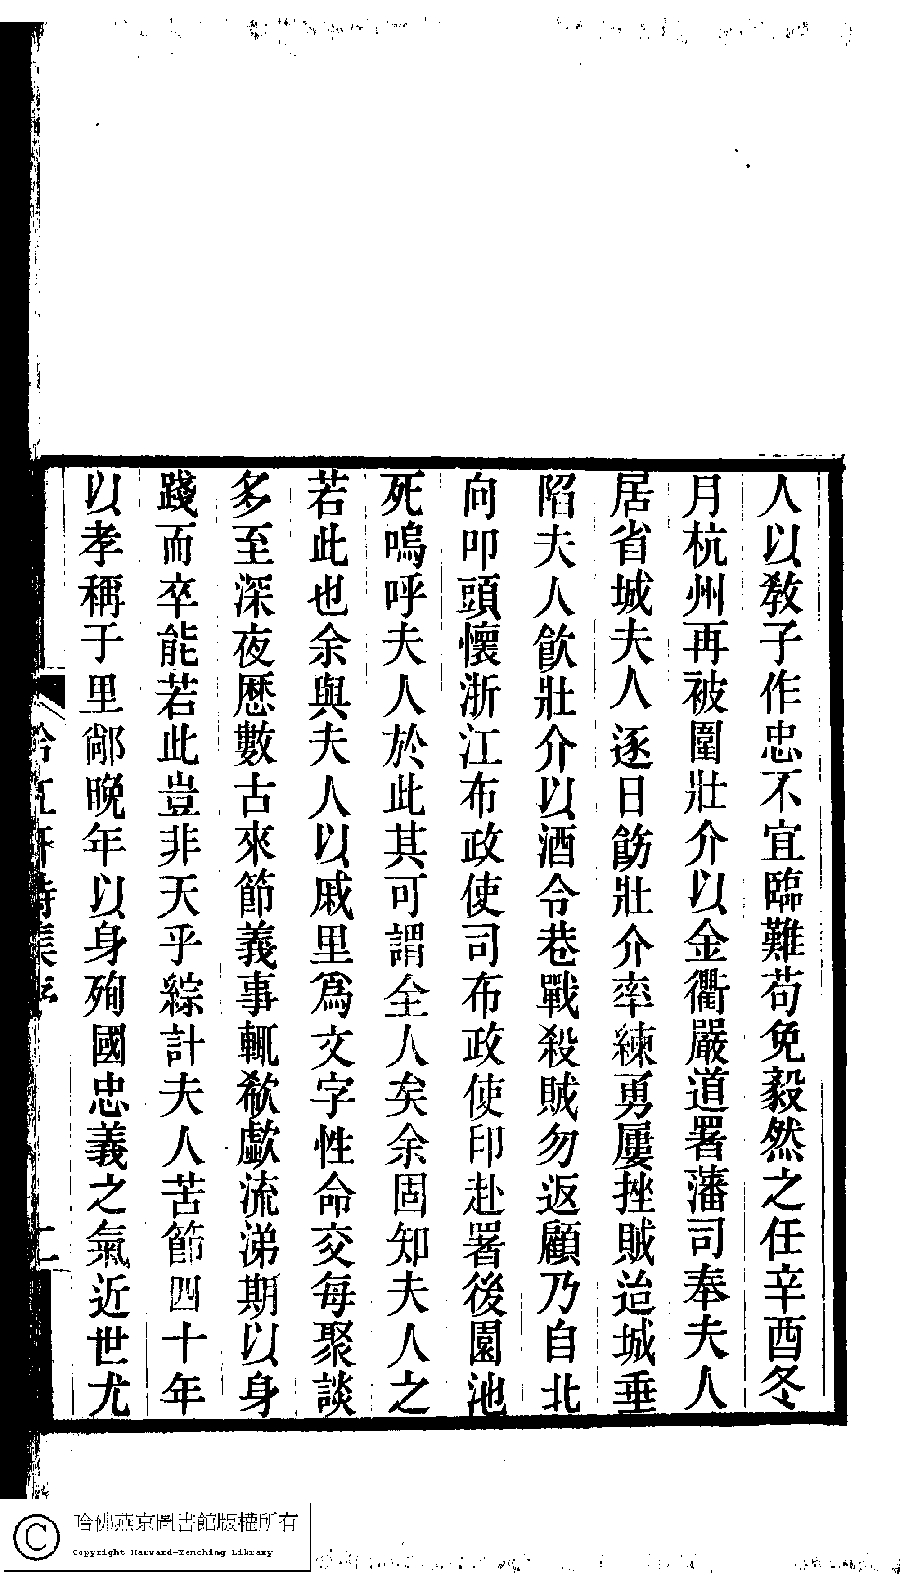 人以敎子作忠不宜臨難苟免毅然之任辛酉冬
月杭州再被圍壯介以金衢嚴道署藩司奉夫人
居省城夫人逐日飭壯介率練勇屢挫賊迨城垂
陷夫人飮壯介以酒令巷戰殺賊勿返顧乃自北
向叩頭懷浙江布政使司布政使印赴署後園池
死嗚呼夫人於此其可謂全人矣余固知夫人之
若此也余與夫人以戚里爲文字性命交每聚談
多至深夜歷數古來節義事輒欷歔流涕期以身
踐而卒能若此豈非天乎綜計夫人苦節四十年
以孝稱于里鄰晚年以身殉國忠義之氣近世尤
哈佛燕京圖書館版權所有
Copyright Harvard-Yenching Library